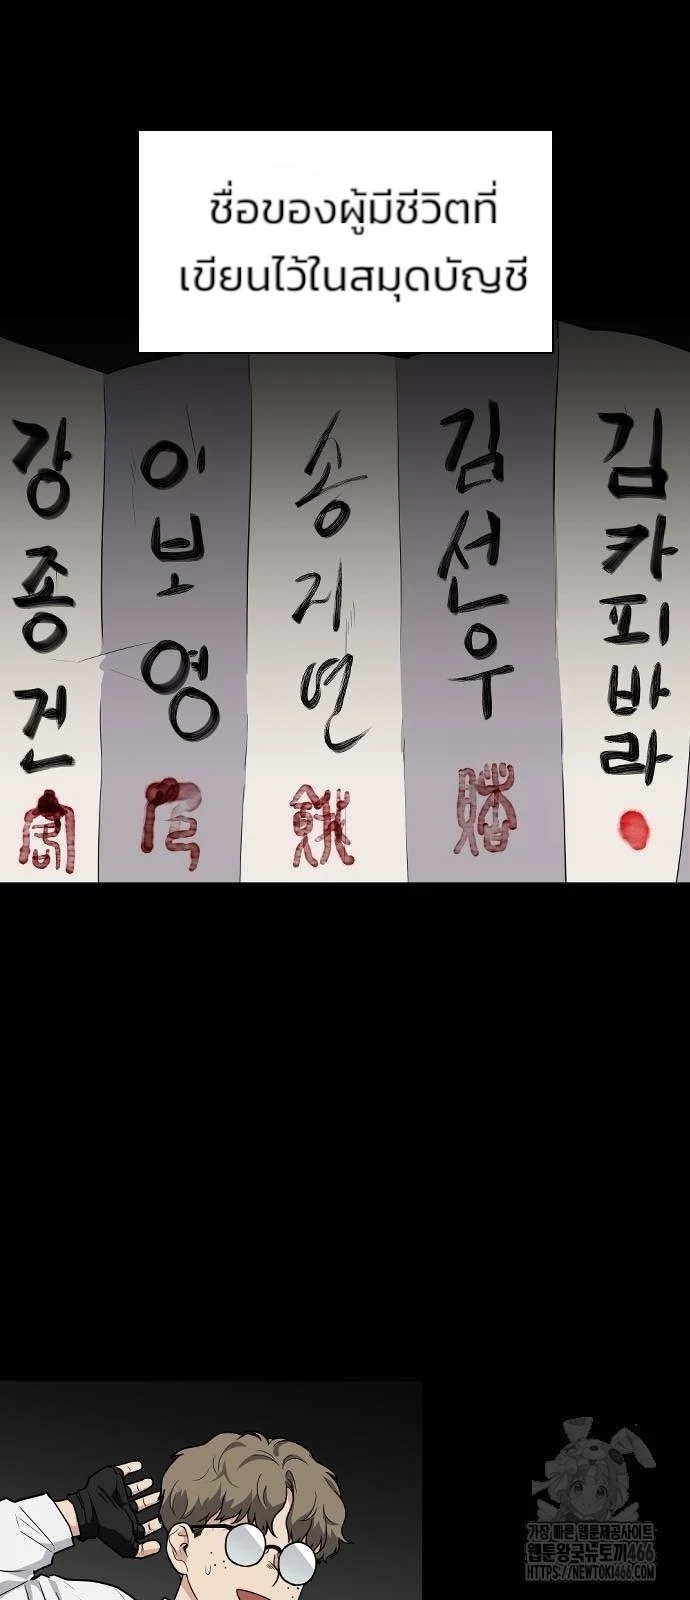 ชื่อของผู้มีชีวิตที่
เขียนไว้ในสมุดบัญชี
강종건
이보영
송지연
김선우
김카피바라
가장 빠른 웹툰제공사이트
웹툰왕국뉴토끼466
HTTPS://NEWTOKI466.COM